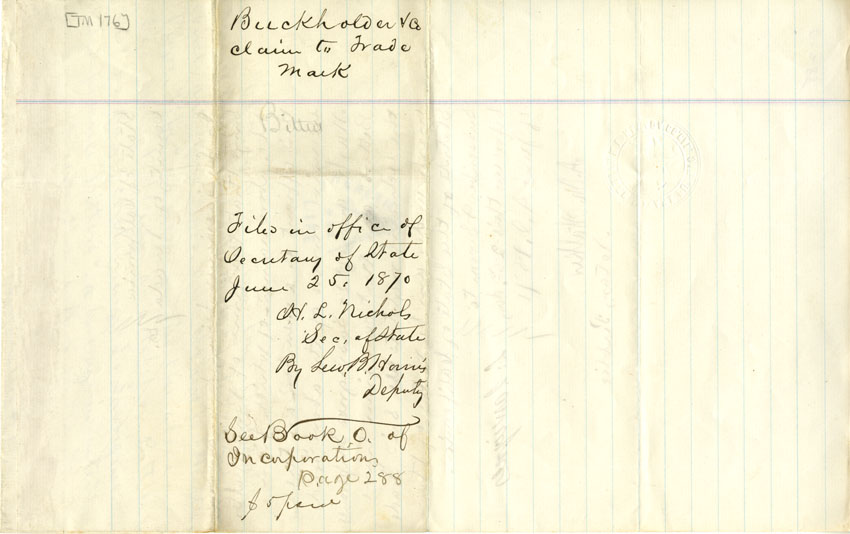 [TM 176]
Buckholder & Co
claim to Trade
Mark
Bitters
Filed in office of
Secretary of State
June 25, 1870
H. L. Nichols
Sec. of State
By Lew. B. Harris
Deputy
See Book O. of
Incorporations
Page 288
$5 paid